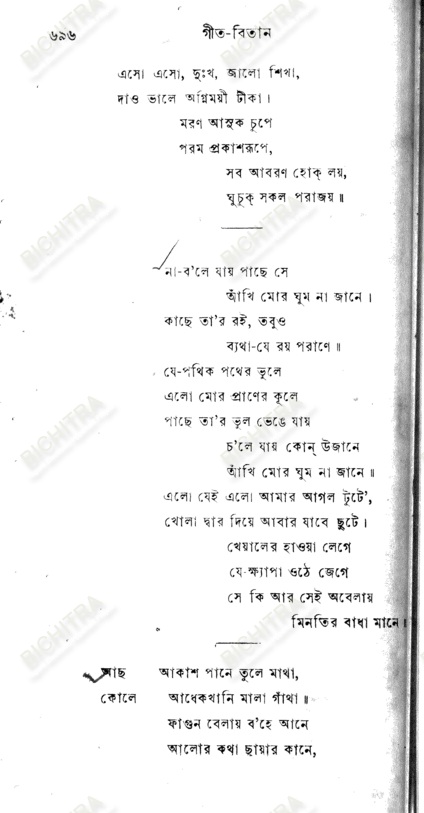 ৬৯৬ গীত-বিতান
এসো এসো, দুঃখ, জ্বালো শিখা,
দাও ভালে অগ্নিময়ী টীকা।
মরণ আসুক চুপে
পরম প্রকাশরূপে,
সব আবরণ হোক্ লয়,
ঘুচুক্ সকল পরাজয়॥
না-ব'লে যায় পাছে সে
আঁখি মোর ঘুম না জানে।
কাছে তা'র রই, তবুও
ব্যথা-যে রয় পরাণে॥
যে-পথিক পথের ভুলে
এলো মোর প্রাণের কূলে
পাছে তা'র ভুল ভেঙে যায়
চ'লে যায় কোন্ উজানে
আঁখি মোর ঘুম না জানে॥
এলো যেই এলো আমার আগল টুটে',
খোলা দ্বার দিয়ে আবার যাবে ছুটে।
খেয়ালের হাওয়া লেগে
যে-ক্ষ্যাপা ওঠে জেগে
সে কি আর সেই অবেলায়
মিনতির বাধা মানে॥
আছ আকাশ পানে তুলে মাথা,
কোলে আধেকখানি মালা গাঁথা॥
ফাগুন বেলায় ব'হে আনে
আলোর কথা ছায়ার কানে,
BICHITRA